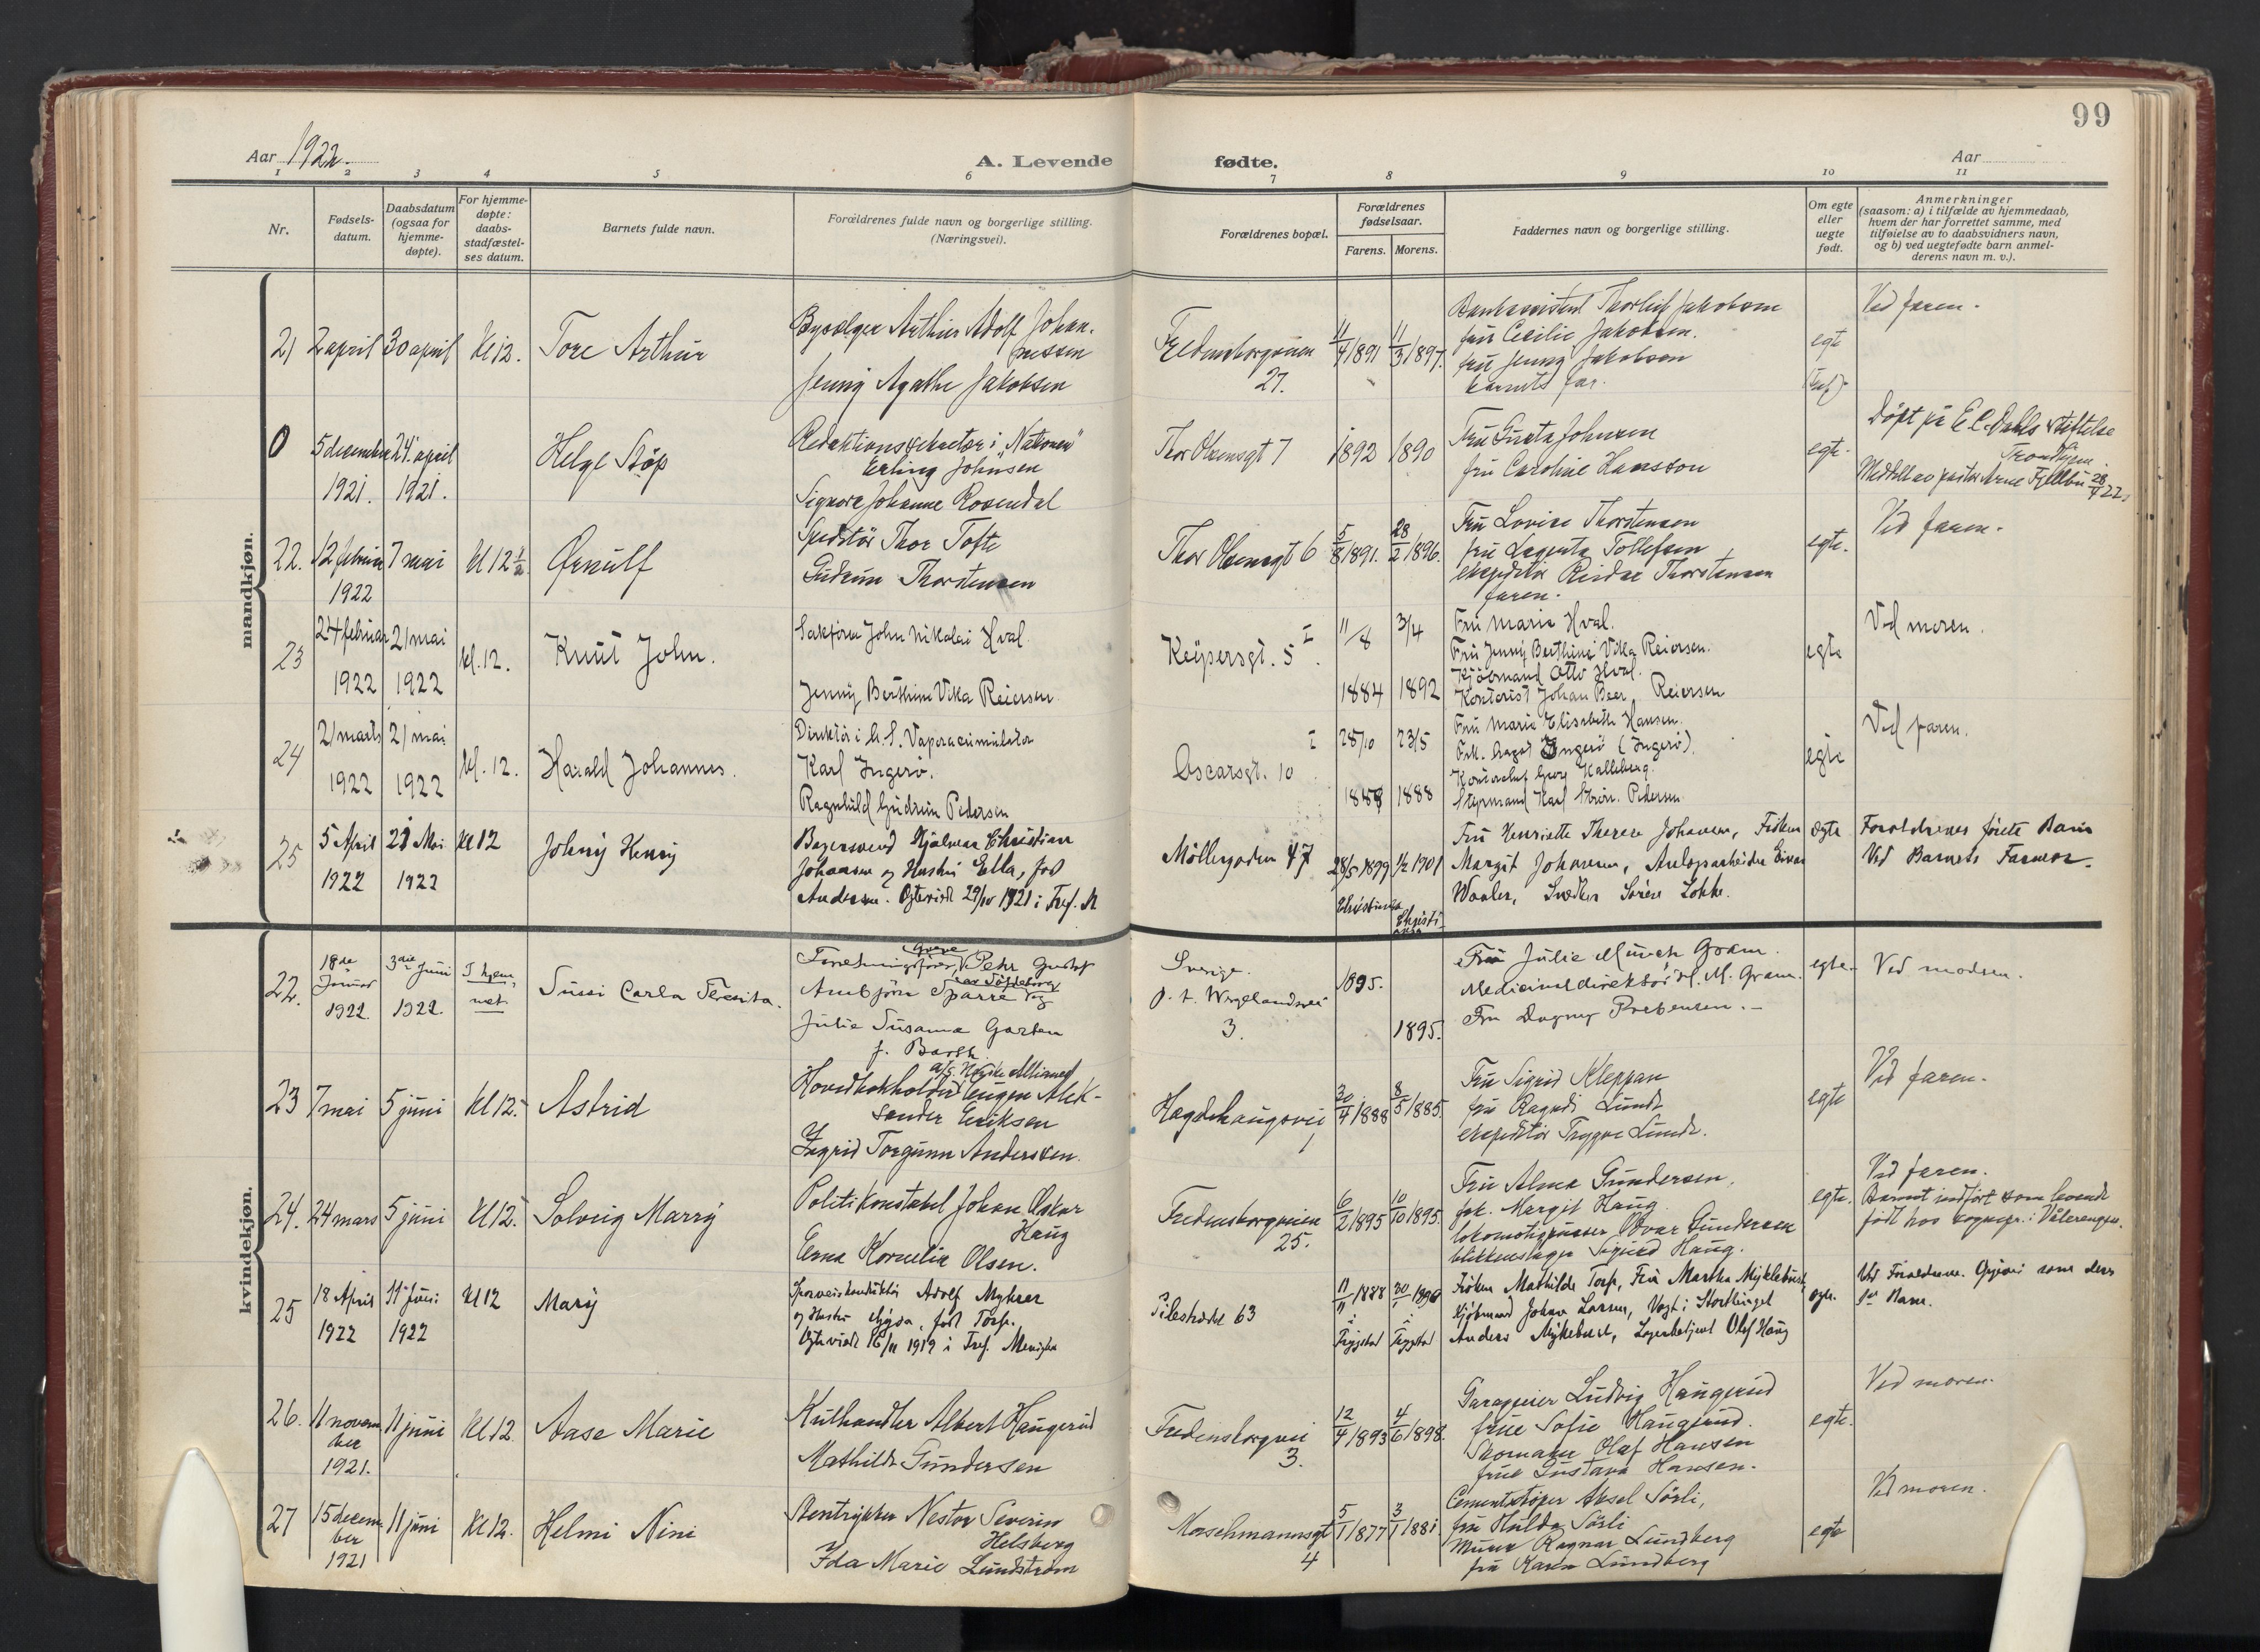 99
Aar 1922.
A. Levende
fødte.
Aar
1 2 3 4 5 6 7 8 9 10 11
Nr.
Fødsels-
datum.
Daabsdatum
(ogsaa for
hjemme-
døpte).
For hjemme-
døpte:
daabs-
stadfæstel-
ses datum.
Barnets fulde navn.
Forældrenes fulde navn og borgerlige stilling.
(Næringsvei).
Forældrenes bopæl.
Forældrenes
fødselsaar.
Farens. Morens.
Faddernes navn og borgerlige stilling.
Om egte
eller
uegte
født.
Anmerkninger
(saasom: a) i tilfælde av hjemmedaab,
hvem der har forrettet samme, med
tilføielse av to daabsvidners navn,
og b) ved uegtefødte barn anmel-
derens navn m. v.).
mandkjøn.
21 2 april 30 april Kl 12. Tore Arthur
Bysælger Arthur Adolf Johan-
nessen
Jenny Agathe Jakobsen
Fredensborgveien
27.
11/4 1891 11/3 1897.
Bankassistent Thorleif Jakobsen
fru Cecilie Jakobsen.
fru Jenny Jakobsen
barnets far.
egte
Ved faren.
0 5 december 24 april
1921. 1921.
Helge Støp
Redaktionssekretær i "Nationen"
Erling Johnsen
Signore Johanne Rosendal
Thor Olsensgt 7
1892 1890
Fru Gusta Johnsen
fru Caroline Hansson
egte.
Døpt på E. C. Dahls Stiftelse
Trondhjem.
Meddelt av pastor Arne Fjellbu 28/4 22.
22. 12 februar 7 mai Kl 12 1/2 Ørnulf
1922
Speditør Thor Tofte
Gudrun Thorstensen
Thor Olsensgt 6
5/8 1891. 28/2 1896.
Fru Lovise Thorstensen
fru Lagerta Tollefsen
ekspeditør Reidar Thorstensen
faren.
egte.
Ved faren.
23 24 februar 21 mai kl. 12. Knut John.
1922 1922
Sakfører John Nikolai Hval.
Jenny Berthine Vika Reiersen.
Keysersgt. 5 I.
11/8 3/4
1884 1892
Fru Marie Hval.
Fru Jenny Berthine Vika Reiersen.
Kjøbmand Otto Hval.
Kontorist Johan Beer Reiersen
egte
Ved moren.
24 21 marts 21 mai kl. 12. Harald Johannes.
1922 1922
Direktør i A. S. Vaporacumulator
Karl Ingerø.
Ragnhild Gudrun Pedersen
Oscarsgt. 10 I
28/10 23/5
1888
Fru Marie Elisabeth Hansen.
Frk. Aagot Ingerø (Ingerø).
Kontorchef Georg Kalleberg.
Styrmand Karl Pedersen.
egte
Ved faren.
25 5 April 21 Mai Kl 12 Johny Henry
1922 1922
Bagersvend Hjalmar Christian
Johansen og Hustru Ella, født
Andersen. Egteviet 29/10 1921 i Tref. M
Møllergaden 47
28/5 1899 1/2 1901
Christiania
Christi-
ania
Fru Henriette Therese Johansen, Frøken
Margit Johansen, Anlægsarbeider Einar
Waaler, Snedker Sören Løkke.
egte
Forældrenes første Barn
Ved Barnets Farmor.
kvindekjøn.
22. 18de 3die Juni I hjem-
Januar met
1922. 1922.
Sussi Carla Teresita.
Forretningsfører, Greve Pehr Gustaf
Ambjörn Sparre av Söfdeborg og
Julie Susanna Garben
f. Barth.
Sverige.
p. t. Wergelandsvei
3.
1895.
1895.
Fru Julie Munch Gram.
Medicinaldirektør H. M. Gram.
Fru Dagny Prebensen.
egte.
Ved modren.
23 7 mai 5 juni Kl 12. Astrid
a/s. Norske Alliance
Hovedbokholder Eugen Alek-
sander Eriksen
Ingrid Torgunn Anderssen.
Hægdehaugsvei
1
30/4 1888 8/5 1885.
Fru Sigrid Kleppan
fru Ragndi Lunde
ekspeditør Trygve Lunde.
egte
Ved faren.
24. 24 mars 5 juni Kl 12. Solveig Marry
Politikonstabel Johan Oskar
Haug
Erna Kornelia Olsen.
Fredensborgveien
25.
6/2 1895 10/10 1895.
Fru Alma Gundersen,
frk. Margit Haug.
lokomotivpusser Ivar Gundersen
blikkenslager Sigurd Haug.
egte.
Ved faren.
Barnet indført som levende
født hos sognepr. i Vålerengen.
25 18 April 11te Juni Kl 12 Mary
1922 1922
Sporveiskonduktør Adolf Myhrer
og Hustru Gyda, født Torp.
Egteviet 16/11 1919 i Tref. Menighet
Pilestrædet 63
11/11 1888 30/1 1896
i i
Trygstad Trygstad
Frøken Mathilde Torp, Fru Martha Myklebust,
Kjøbmand Johan Larsen, Vagt i Stortinget
Anders Myklebust, Lagerbetjent Olaf Haug
egte.
Ved Forældrene. Opgivet som deres
1ste Barn.
26. 11 novem- 11 juni Kl 12. Aase Marie
ber
1921.
Kulhandler Albert Haugerud
Mathilde Gundersen
Fredensborgvei
3.
12/4 1893 4/6 1898.
Garageeier Ludvig Haugerud
frue Sofie Haugerud.
Skomaker Olaf Hansen
frue Gustava Hansen.
egte.
Ved moren.
27 15 decem- 11 juni Kl 12. Helmi Nini
ber
1921
Stentrykker Nestor Severin
Helsberg
Ida Marie Lundström
Maschmannsgt
4
5/1 1877 3/1 1881
Cementstøper Aksel Sørli,
fru Hulda Sørli
Murer Ragnar Lundberg
fru Karen Lundberg
egte
Ved moren.